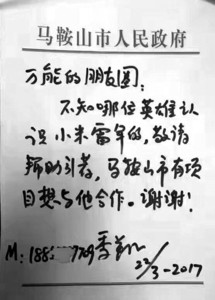 马鞍山市人民政府
万能的朋友圈:
不知哪位英雄认
识小米雷军的,敬请
帮助引者,马鞍山市有项
目想与他合作。谢谢!
M:188 7709 季翔
22/3-2017